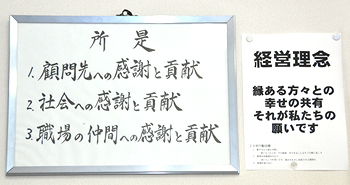 所是
1. 顧問先への感謝と貢献
2. 社会への感謝と貢献
3. 職場の仲間への感謝と貢献
経営理念
縁ある方々との
幸せの共有
それが私たちの
願いです